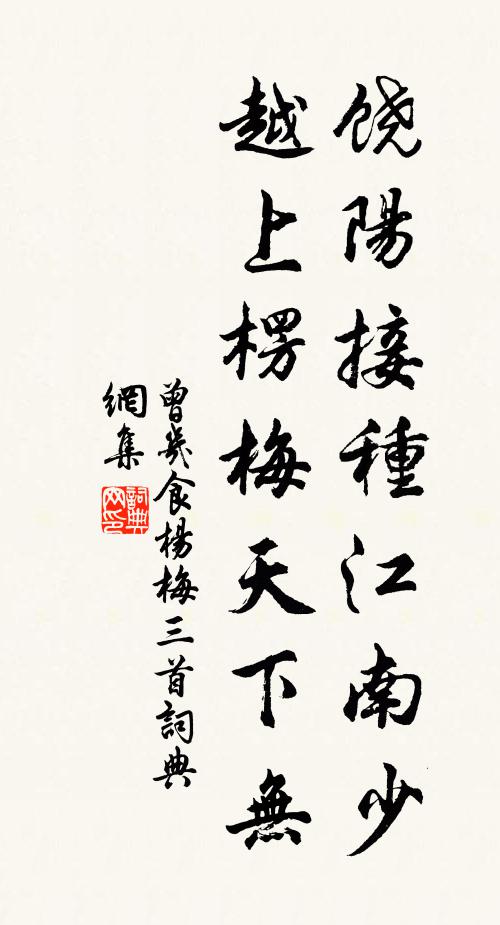 饶陽接種江南少
越上楞梅天下無
曾幾食楊梅三首詞典
網集
詞典
网印